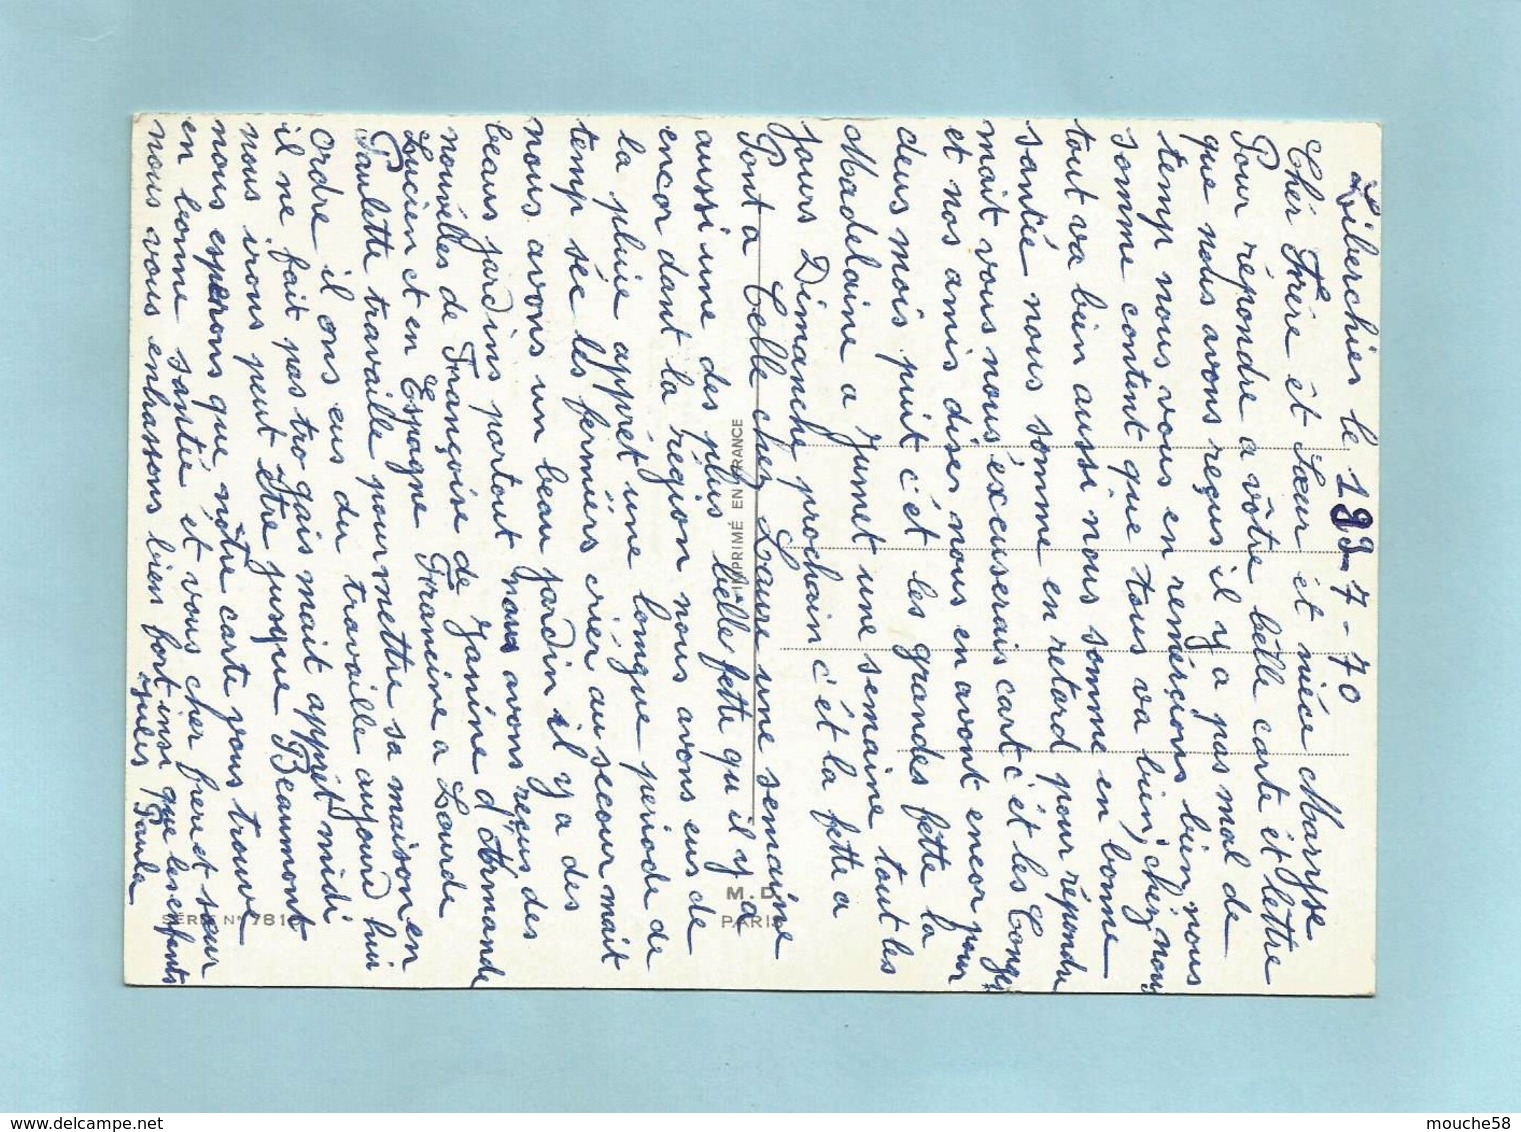 Liberchies le 19-7-70
Chèr Frère èt Sœur èt nièce Maryse
Pour répondre a vôtre bèlle carte èt lettre
que nous avons reçus il y a pas mal de
temp nous vous en remérçions bien, nous
somme contènt que tous va bien, chèz nous
tout va bien aussi nous somme en bonne
santée nous somme en retard pour répondre
mait vous nous éxcuserais cart c'ét les Conger
et nos amis diser nous en avont encor pour
deus mois puit c'ét les grandes fètte la
Madelaine a Jumet une semaine tout les
jours Dimanche prochain c'ét la fètte a
Pont a Celle chez Laure une semaine
aussi une des plus bèlle fètte qu il y a
encor dant la région nous avons eus de
la pluie apprèt une longue periode de
temp séc lès fermiérs crier au secour mait
nous avons un beau jardin il y a des
beaus jardins partout nous avons reçus des
nouvélles de Françoise de Janine d'Armande
Lucien et en Espagne Francine a Lourde
Paulette travaille pour mettre sa maison en
Ordre il ons eus du travaille aujourd hui
il ne fait pas tro gais mait apprèt midi
nous irons peut être jusque Beaumont
nous esperons que nôtre carte vous trouve
en bonne santié et vous cher frere et sœur
nous vous enbrassons biens fort insi que les enfants
Jules Paula
IMPRIMÉ EN FRANCE
M. D.
PARIS
SÉRIE N° 781
mouche58